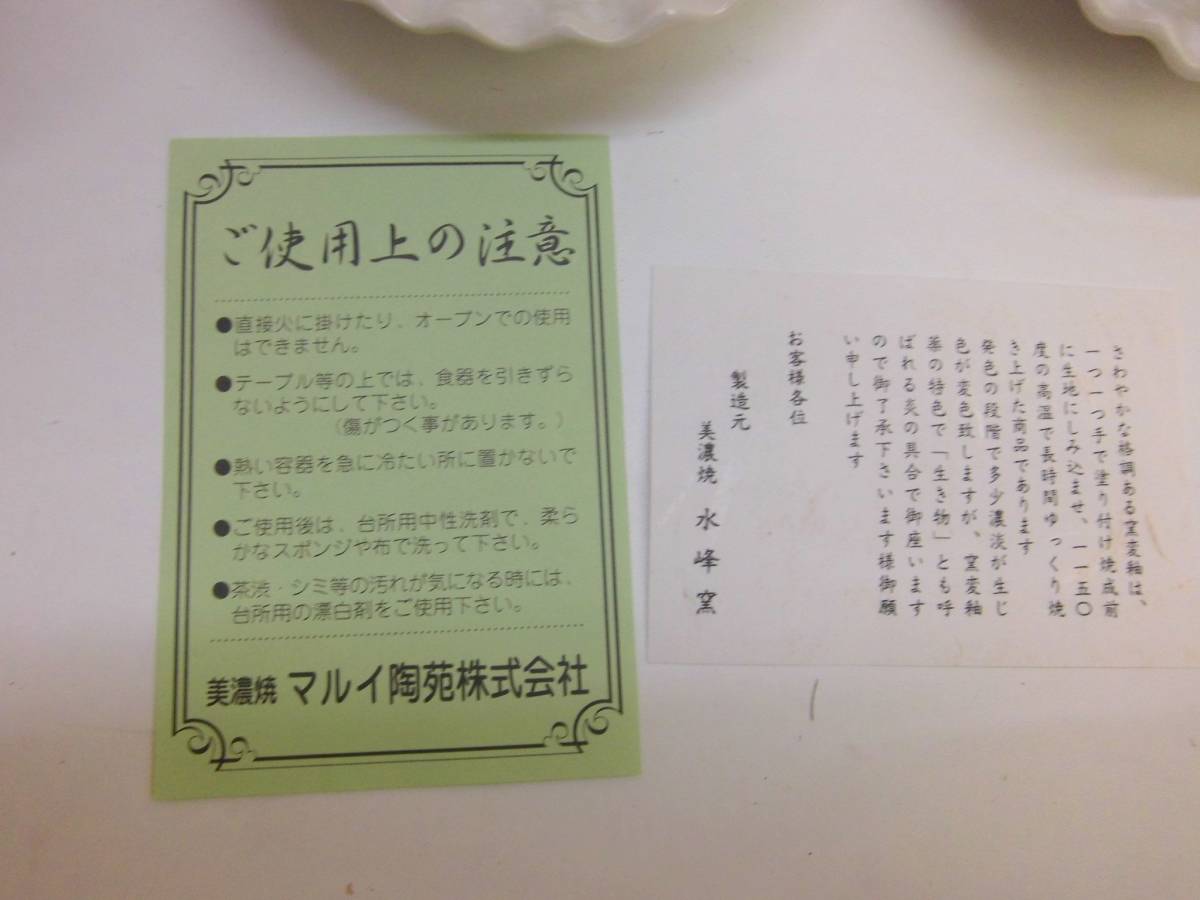 ご使用上の注意
●直接火に掛けたり、オーブンでの使用
はできません。
●テーブル等の上では、食器を引きずら
ないようにして下さい。
（傷がつく事があります。）
●熱い容器を急に冷たい所に置かないで
下さい。
●ご使用後は、台所用中性洗剤で、柔ら
かなスポンジや布で洗って下さい。
●茶渋・シミ等の汚れが気になる時には、
台所用の漂白剤をご使用下さい。
美濃焼 マルイ陶苑株式会社
さわやかな格調ある窯変釉は、
一つ一つ手で塗り付け焼成前
に生地にしみ込ませ、一一五〇
度の高温で長時間ゆっくり焼
き上げた商品であります
発色の段階で多少濃淡が生じ
色が変色致しますが、窯変釉
薬の特色で「生き物」とも呼
ばれる炎の具合で御座います
ので御了承下さいます様御願
い申し上げます
お客様各位
製造元
美濃焼 水峰窯